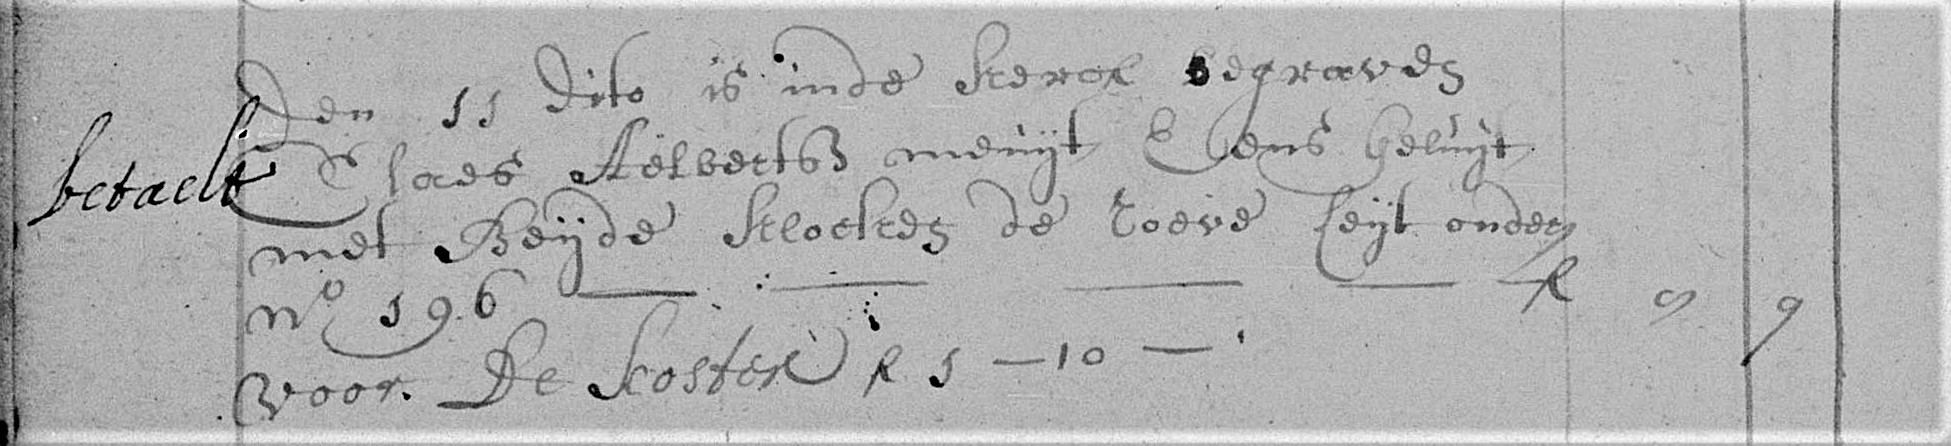 Den 11 dito is inde kerck begraven
betaelt Claes Aelbertsz meuijt Eens geluijt
met Beijde klocken de roeve leijt onder
no 196 — — — — R 9
voor. De koster R 1 — 10 —